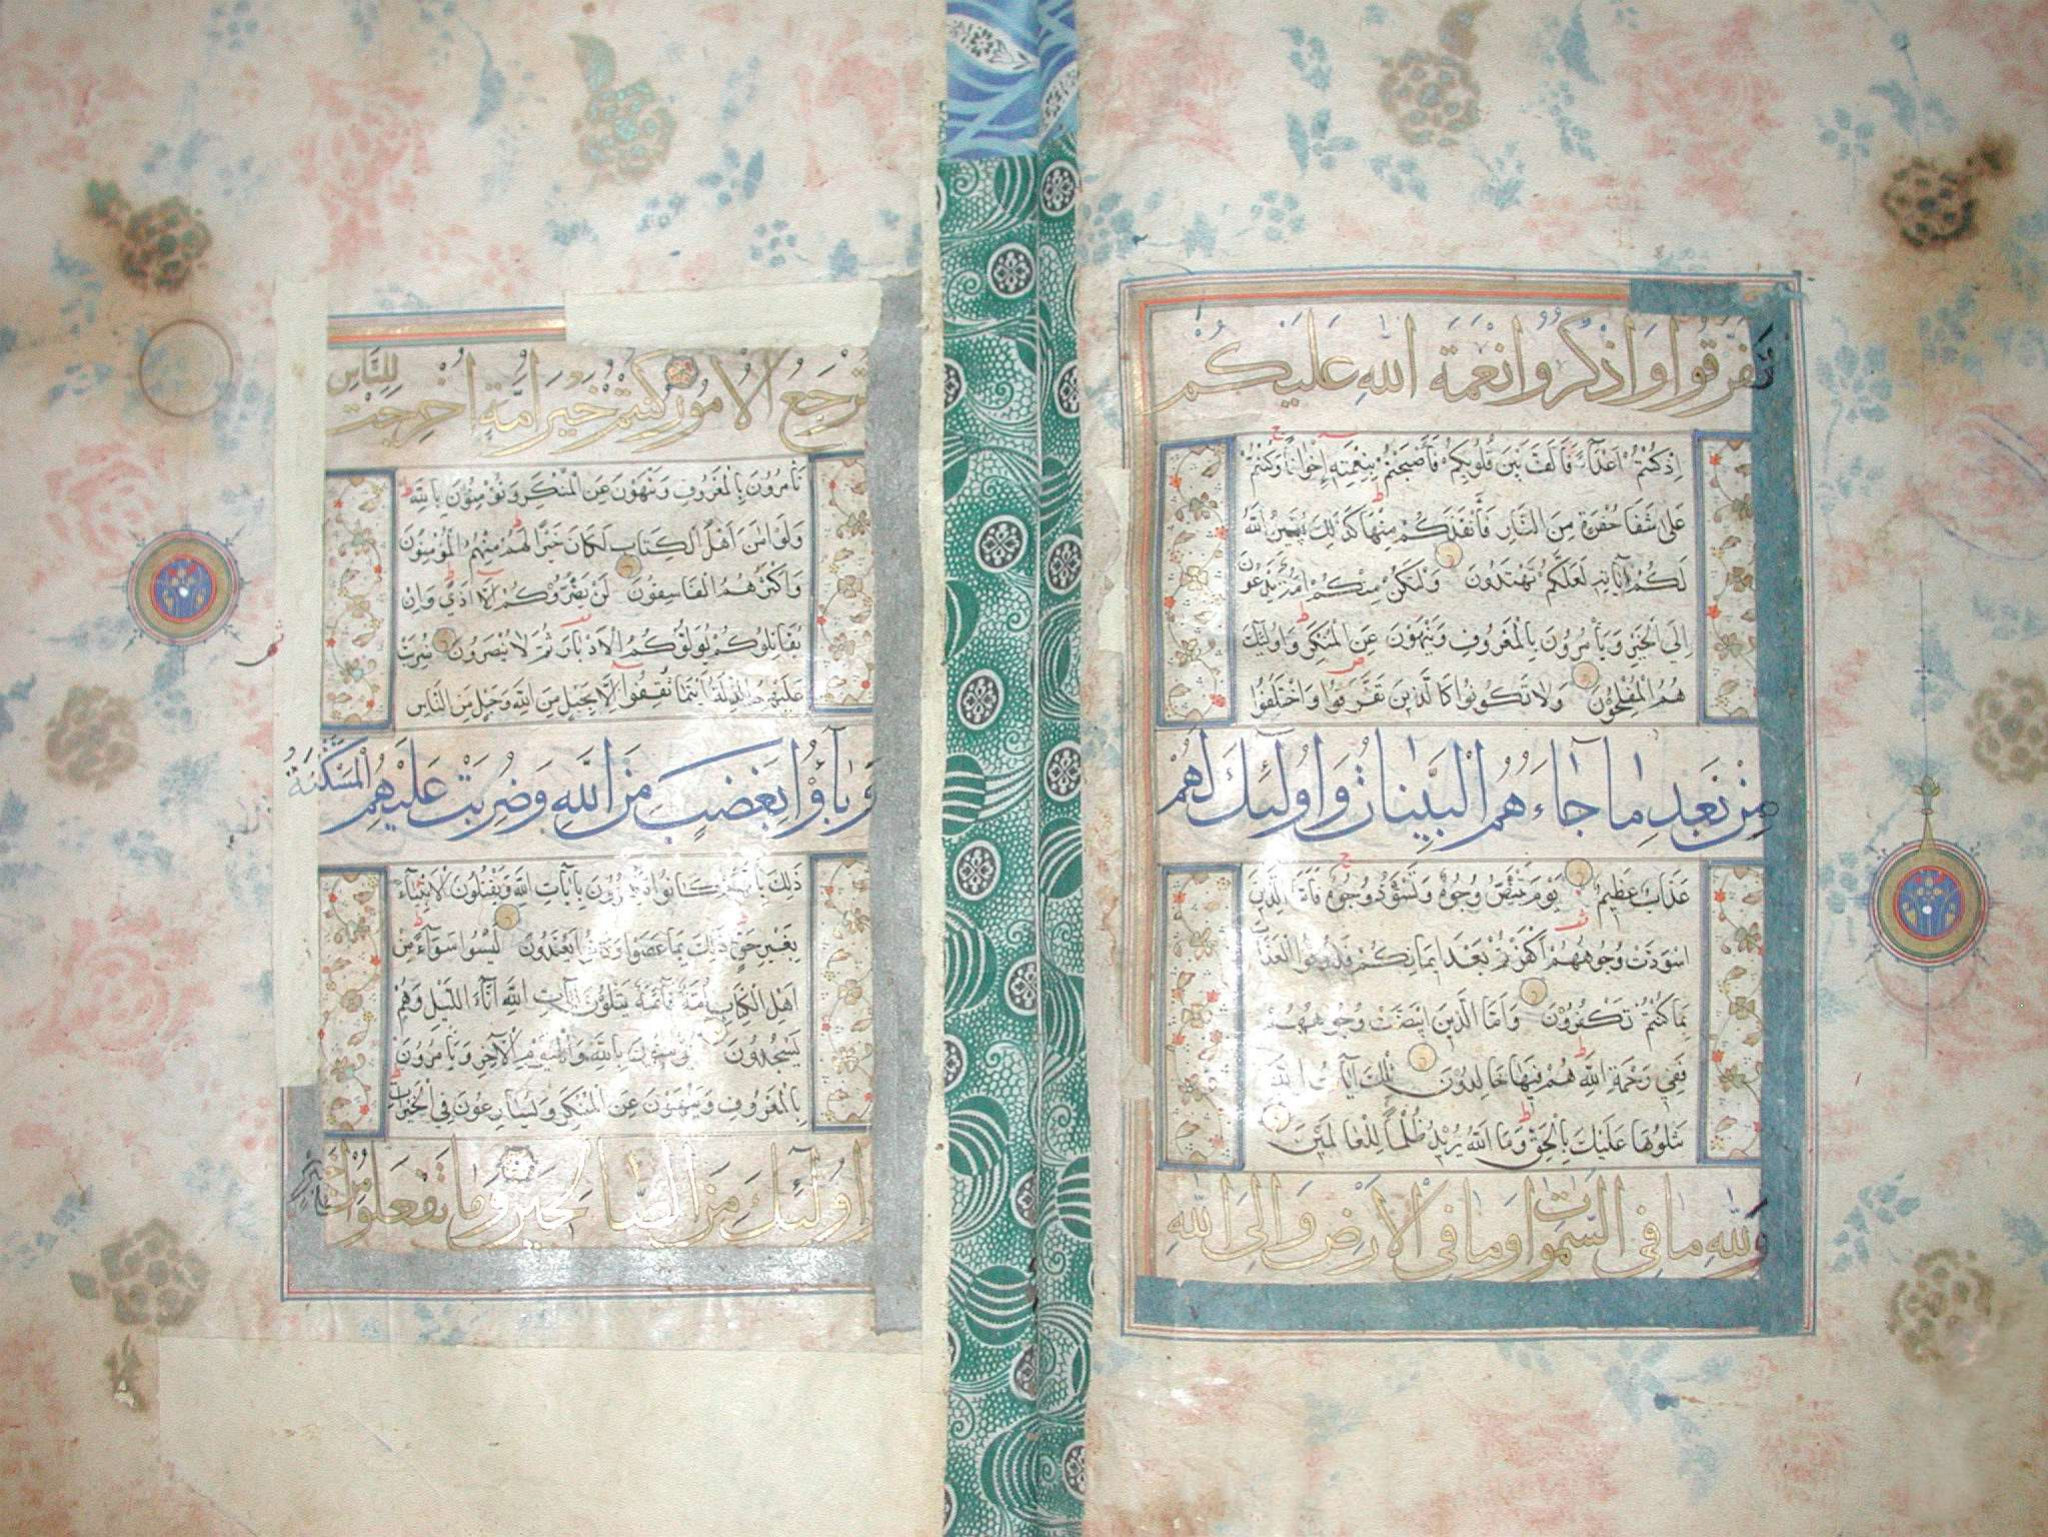 تفرقوا واذكروا نعمة الله عليكم
اِذكُنْتُمْ اَعْدَآءً فَاَلَّفَ بَيْنَ قُلُوبِكُمْ فَاَصْبَحْتُمْ بِنِعْمَتِهِ اِخْوَانًا وَكُنْتُمْ
عَلَى شَفَا حُفْرَةٍ مِنَ النَّارِ فَاَنْقَذَكُمْ مِنْهَا كَذَلِكَ يُبَيِّنُ اللهُ
لَكُمْ اٰيَاتِهِ لَعَلَّكُمْ تَهْتَدُونَ وَلْتَكُنْ مِنْكُمْ اُمَّةٌ يَدْعُونَ
اِلَى الْخَيْرِ وَيَأْمُرُونَ بِالْمَعْرُوفِ وَيَنْهَوْنَ عَنِ الْمُنْكَرِ وَاُولٰئِكَ
هُمُ الْمُفْلِحُونَ وَلَا تَكُونُوا كَالَّذِينَ تَفَرَّقُوا وَاخْتَلَفُوا
مِنْ بَعْدِ مَا جَآءَهُمُ الْبَيِّنَاتُ وَاُولٰئِكَ لَهُمْ
عَذَابٌ عَظِيمٌ يَوْمَ تَبْيَضُّ وُجُوهٌ وَتَسْوَدُّ وُجُوهٌ فَاَمَّا الَّذِينَ
اسْوَدَّتْ وُجُوهُهُمْ اَكَفَرْتُمْ بَعْدَ اِيمَانِكُمْ فَذُوقُوا الْعَذَابَ
بِمَا كُنْتُمْ تَكْفُرُونَ وَاَمَّا الَّذِينَ ابْيَضَّتْ وُجُوهُهُمْ
فَفِي رَحْمَةِ اللهِ هُمْ فِيهَا خَالِدُونَ تِلْكَ اٰيَاتُ اللهِ
نَتْلُوهَا عَلَيْكَ بِالْحَقِّ وَمَا اللهُ يُرِيدُ ظُلْمًا لِلْعَالَمِينَ
وَلِلّٰهِ مَا فِي السَّمٰوَاتِ وَمَا فِي الْاَرْضِ وَاِلَى اللهِ
تُرْجَعُ الْاُمُورُ كُنْتُمْ خَيْرَ اُمَّةٍ اُخْرِجَتْ لِلنَّاسِ
تَأْمُرُونَ بِالْمَعْرُوفِ وَتَنْهَوْنَ عَنِ الْمُنْكَرِ وَتُؤْمِنُونَ بِاللهِ
وَلَوْ اٰمَنَ اَهْلُ الْكِتَابِ لَكَانَ خَيْرًا لَهُمْ مِنْهُمُ الْمُؤْمِنُونَ
وَاَكْثَرُهُمُ الْفَاسِقُونَ لَنْ يَضُرُّوكُمْ اِلَّا اَذًى وَاِنْ
يُقَاتِلُوكُمْ يُوَلُّوكُمُ الْاَدْبَارَ ثُمَّ لَا يُنْصَرُونَ ضُرِبَتْ
عَلَيْهِمُ الذِّلَّةُ اَيْنَمَا ثُقِفُوا اِلَّا بِحَبْلٍ مِنَ اللهِ وَحَبْلٍ مِنَ النَّاسِ
وَبَآؤُا بِغَضَبٍ مِنَ اللهِ وَضُرِبَتْ عَلَيْهِمُ الْمَسْكَنَةُ
ذٰلِكَ بِاَنَّهُمْ كَانُوا يَكْفُرُونَ بِاٰيَاتِ اللهِ وَيَقْتُلُونَ الْاَنْبِيَآءَ
بِغَيْرِ حَقٍّ ذٰلِكَ بِمَا عَصَوْا وَكَانُوا يَعْتَدُونَ لَيْسُوا سَوَآءً مِنْ
اَهْلِ الْكِتَابِ اُمَّةٌ قَآئِمَةٌ يَتْلُونَ اٰيَاتِ اللهِ اٰنَآءَ اللَّيْلِ وَهُمْ
يَسْجُدُونَ يُؤْمِنُونَ بِاللهِ وَالْيَوْمِ الْاٰخِرِ وَيَأْمُرُونَ
بِالْمَعْرُوفِ وَيَنْهَوْنَ عَنِ الْمُنْكَرِ وَيُسَارِعُونَ فِي الْخَيْرَاتِ
وَاُولٰئِكَ مِنَ الصَّالِحِينَ وَمَا تَفْعَلُوا مِنْ